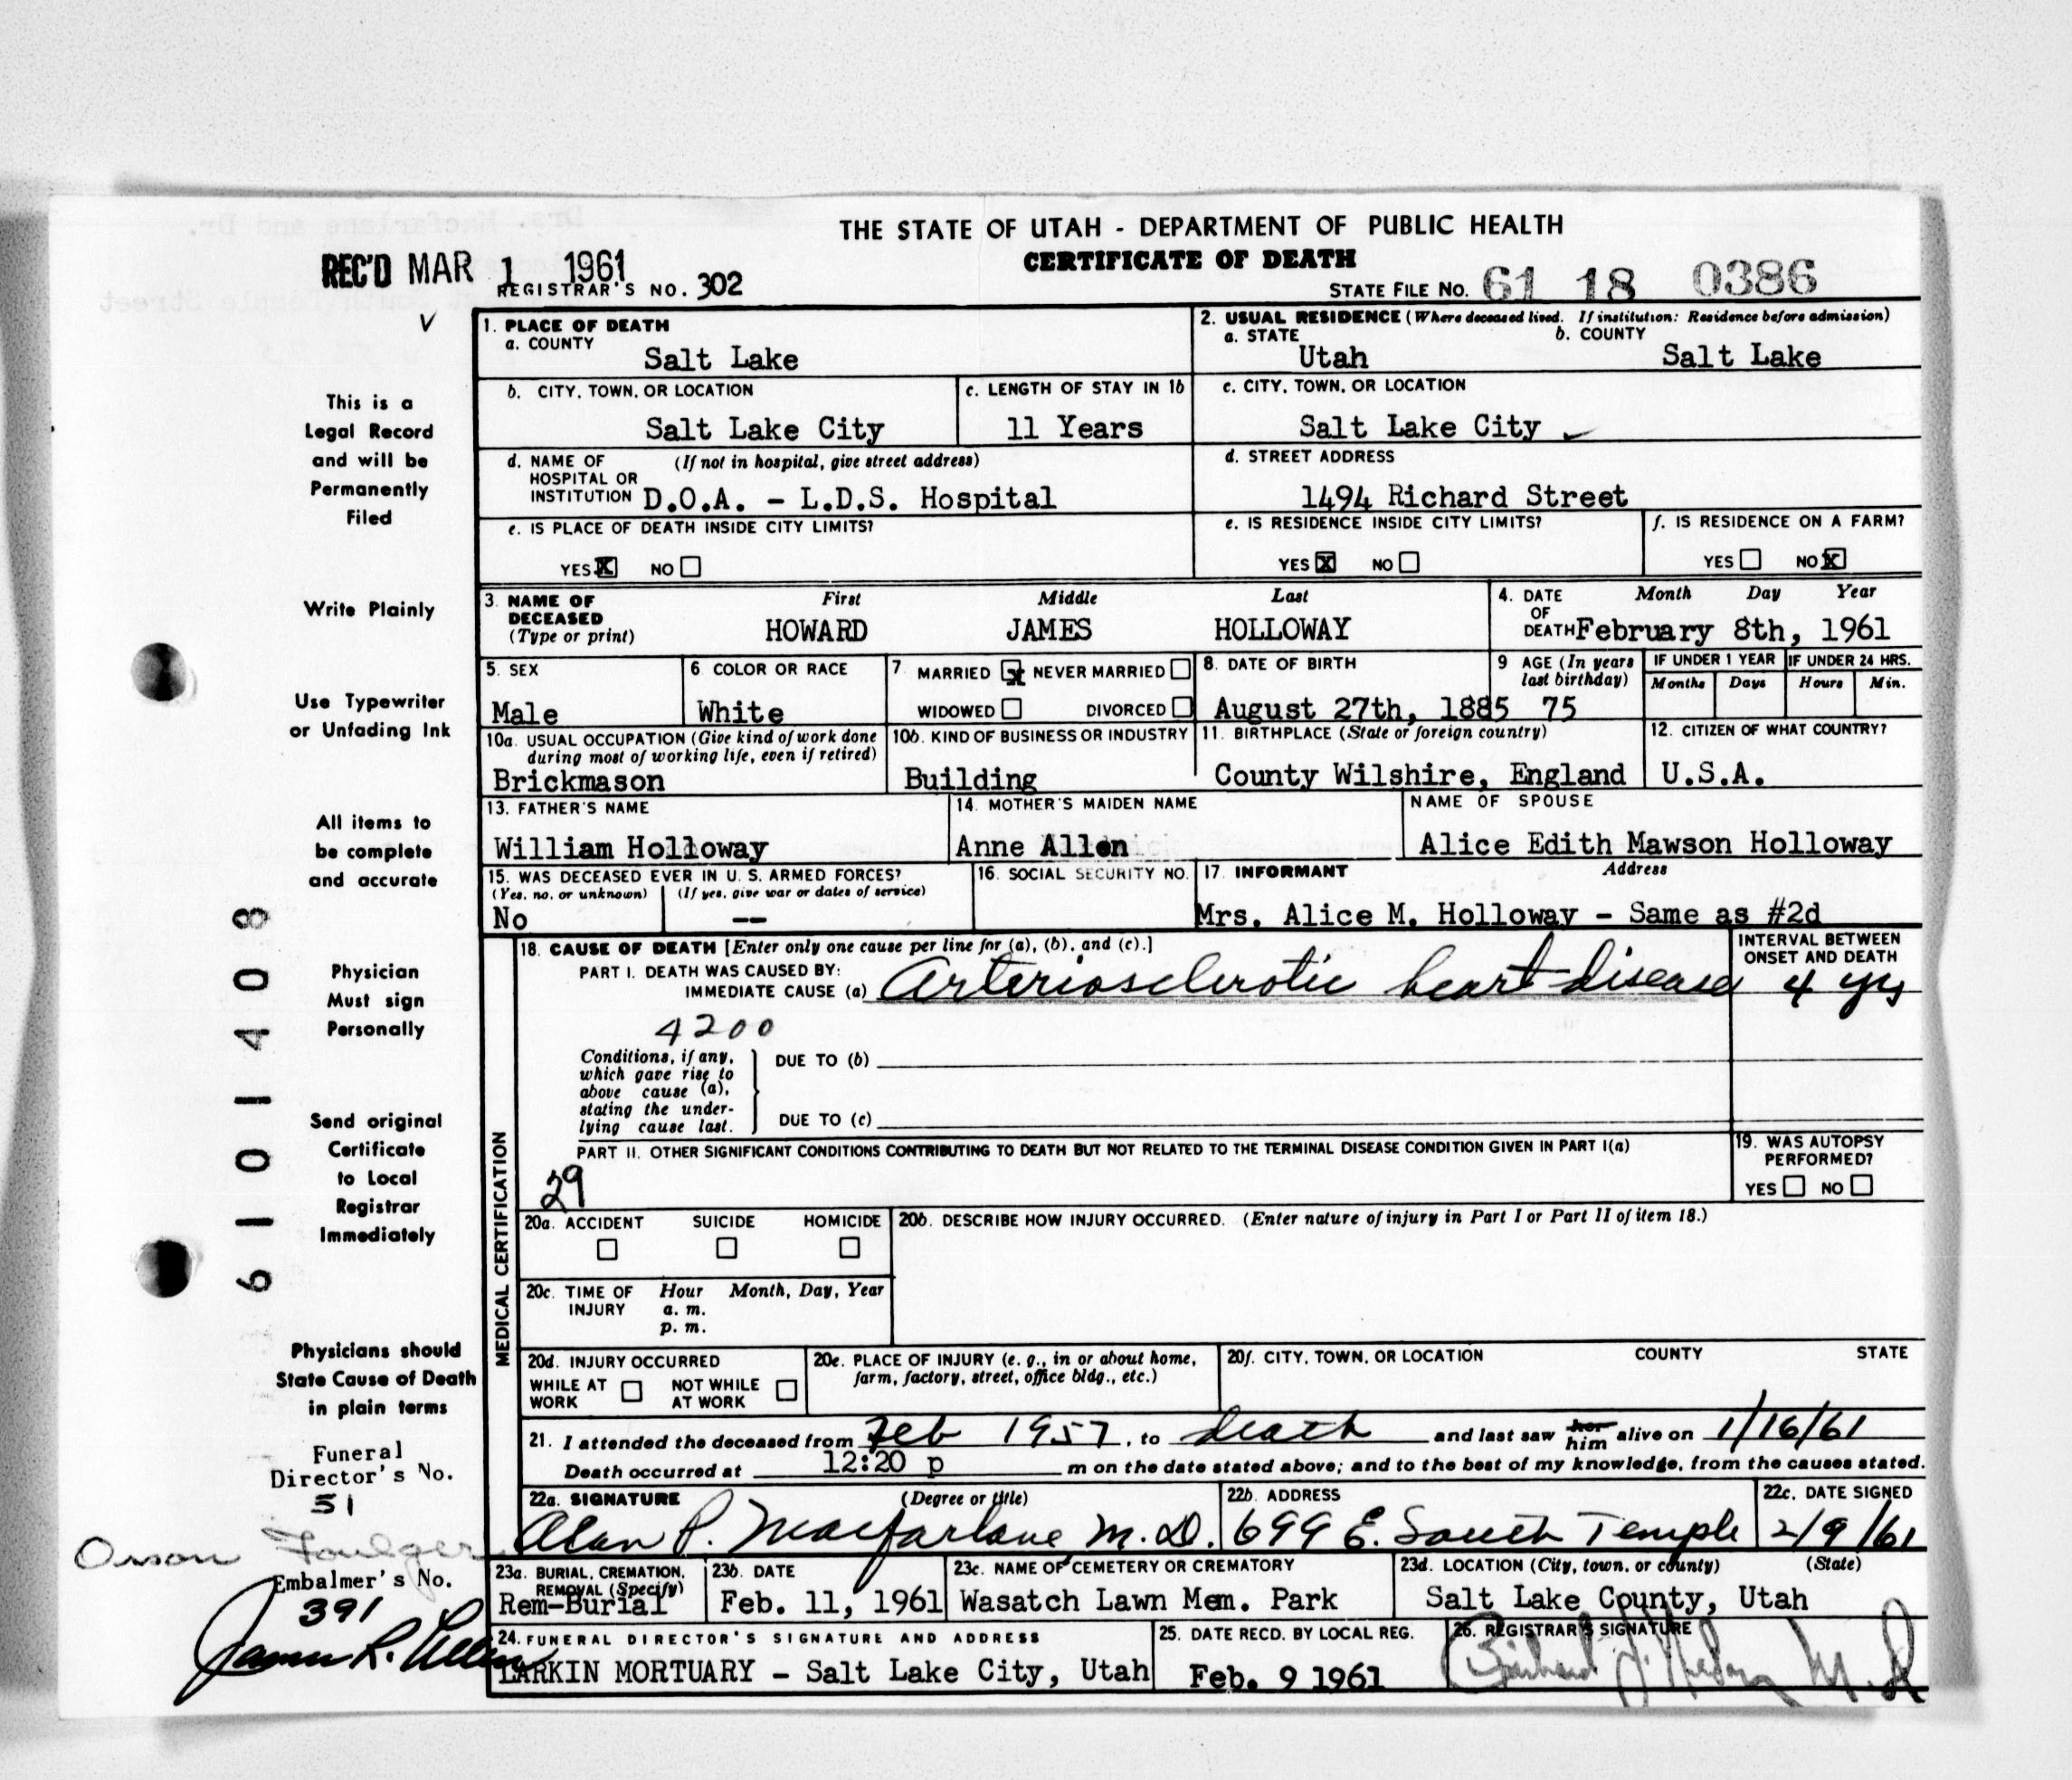 THE STATE OF UTAH - DEPARTMENT OF PUBLIC HEALTH
CERTIFICATE OF DEATH
REC'D MAR 1 1961
REGISTRAR'S NO. 302
STATE FILE NO. 61 18 0386
This is a
Legal Record
and will be
Permanently
Filed
Write Plainly
Use Typewriter
or Unfading Ink
All items to
be complete
and accurate
Physician
Must sign
Personally
Send original
Certificate
to Local
Registrar
Immediately
Physicians should
State Cause of Death
in plain terms
Funeral
Director's No.
51
Orson Foulger
Embalmer's No.
391
James R.
6101408
1. PLACE OF DEATH
a. COUNTY
Salt Lake
2. USUAL RESIDENCE (Where deceased lived. If institution: Residence before admission)
a. STATE b. COUNTY
Utah Salt Lake
b. CITY, TOWN, OR LOCATION
Salt Lake City
c. LENGTH OF STAY IN 1b
11 Years
c. CITY, TOWN, OR LOCATION
Salt Lake City
d. NAME OF (If not in hospital, give street address)
HOSPITAL OR
INSTITUTION D.O.A. - L.D.S. Hospital
d. STREET ADDRESS
1494 Richard Street
e. IS PLACE OF DEATH INSIDE CITY LIMITS?
YES X NO
e. IS RESIDENCE INSIDE CITY LIMITS?
YES X NO
f. IS RESIDENCE ON A FARM?
YES NO X
3. NAME OF First Middle Last
DECEASED
(Type or print) HOWARD JAMES HOLLOWAY
4. DATE Month Day Year
OF
DEATH February 8th, 1961
5. SEX
Male
6. COLOR OR RACE
White
7. MARRIED X NEVER MARRIED
WIDOWED DIVORCED
8. DATE OF BIRTH
August 27th, 1885
9 AGE (In years
last birthday)
75
IF UNDER 1 YEAR IF UNDER 24 HRS.
Months Days Hours Min.
10a. USUAL OCCUPATION (Give kind of work done
during most of working life, even if retired)
Brickmason
10b. KIND OF BUSINESS OR INDUSTRY
Building
11. BIRTHPLACE (State or foreign country)
County Wilshire, England
12. CITIZEN OF WHAT COUNTRY?
U.S.A.
13. FATHER'S NAME
William Holloway
14. MOTHER'S MAIDEN NAME
Anne Allen
NAME OF SPOUSE
Alice Edith Mawson Holloway
15. WAS DECEASED EVER IN U. S. ARMED FORCES?
(Yes, no, or unknown) (If yes, give war or dates of service)
No --
16. SOCIAL SECURITY NO.
17. INFORMANT Address
Mrs. Alice M. Holloway - Same as #2d
MEDICAL CERTIFICATION
18. CAUSE OF DEATH [Enter only one cause per line for (a), (b), and (c).]
PART I. DEATH WAS CAUSED BY:
IMMEDIATE CAUSE (a) Arteriosclerotic heart disease
INTERVAL BETWEEN
ONSET AND DEATH
4 yrs
4200
Conditions, if any,
which gave rise to
above cause (a),
stating the under-
lying cause last.
DUE TO (b)
DUE TO (c)
PART II. OTHER SIGNIFICANT CONDITIONS CONTRIBUTING TO DEATH BUT NOT RELATED TO THE TERMINAL DISEASE CONDITION GIVEN IN PART I(a)
29
19. WAS AUTOPSY
PERFORMED?
YES NO
20a. ACCIDENT SUICIDE HOMICIDE
20b. DESCRIBE HOW INJURY OCCURRED. (Enter nature of injury in Part I or Part II of item 18.)
20c. TIME OF Hour Month, Day, Year
INJURY a. m.
p. m.
20d. INJURY OCCURRED
WHILE AT NOT WHILE
WORK AT WORK
20e. PLACE OF INJURY (e. g., in or about home,
farm, factory, street, office bldg., etc.)
20f. CITY, TOWN, OR LOCATION COUNTY STATE
21. I attended the deceased from Feb 1957, to death and last saw her him alive on 1/16/61
Death occurred at 12:20 p m on the date stated above; and to the best of my knowledge, from the causes stated.
22a. SIGNATURE (Degree or title)
Alan P. Macfarlane M.D.
22b. ADDRESS
699 E. South Temple
22c. DATE SIGNED
2/9/61
23a. BURIAL, CREMATION,
REMOVAL (Specify)
Rem-Burial
23b. DATE
Feb. 11, 1961
23c. NAME OF CEMETERY OR CREMATORY
Wasatch Lawn Mem. Park
23d. LOCATION (City, town, or county) (State)
Salt Lake County, Utah
24. FUNERAL DIRECTOR'S SIGNATURE AND ADDRESS
LARKIN MORTUARY - Salt Lake City, Utah
25. DATE RECD. BY LOCAL REG.
Feb. 9 1961
26. REGISTRAR'S SIGNATURE
M.D.